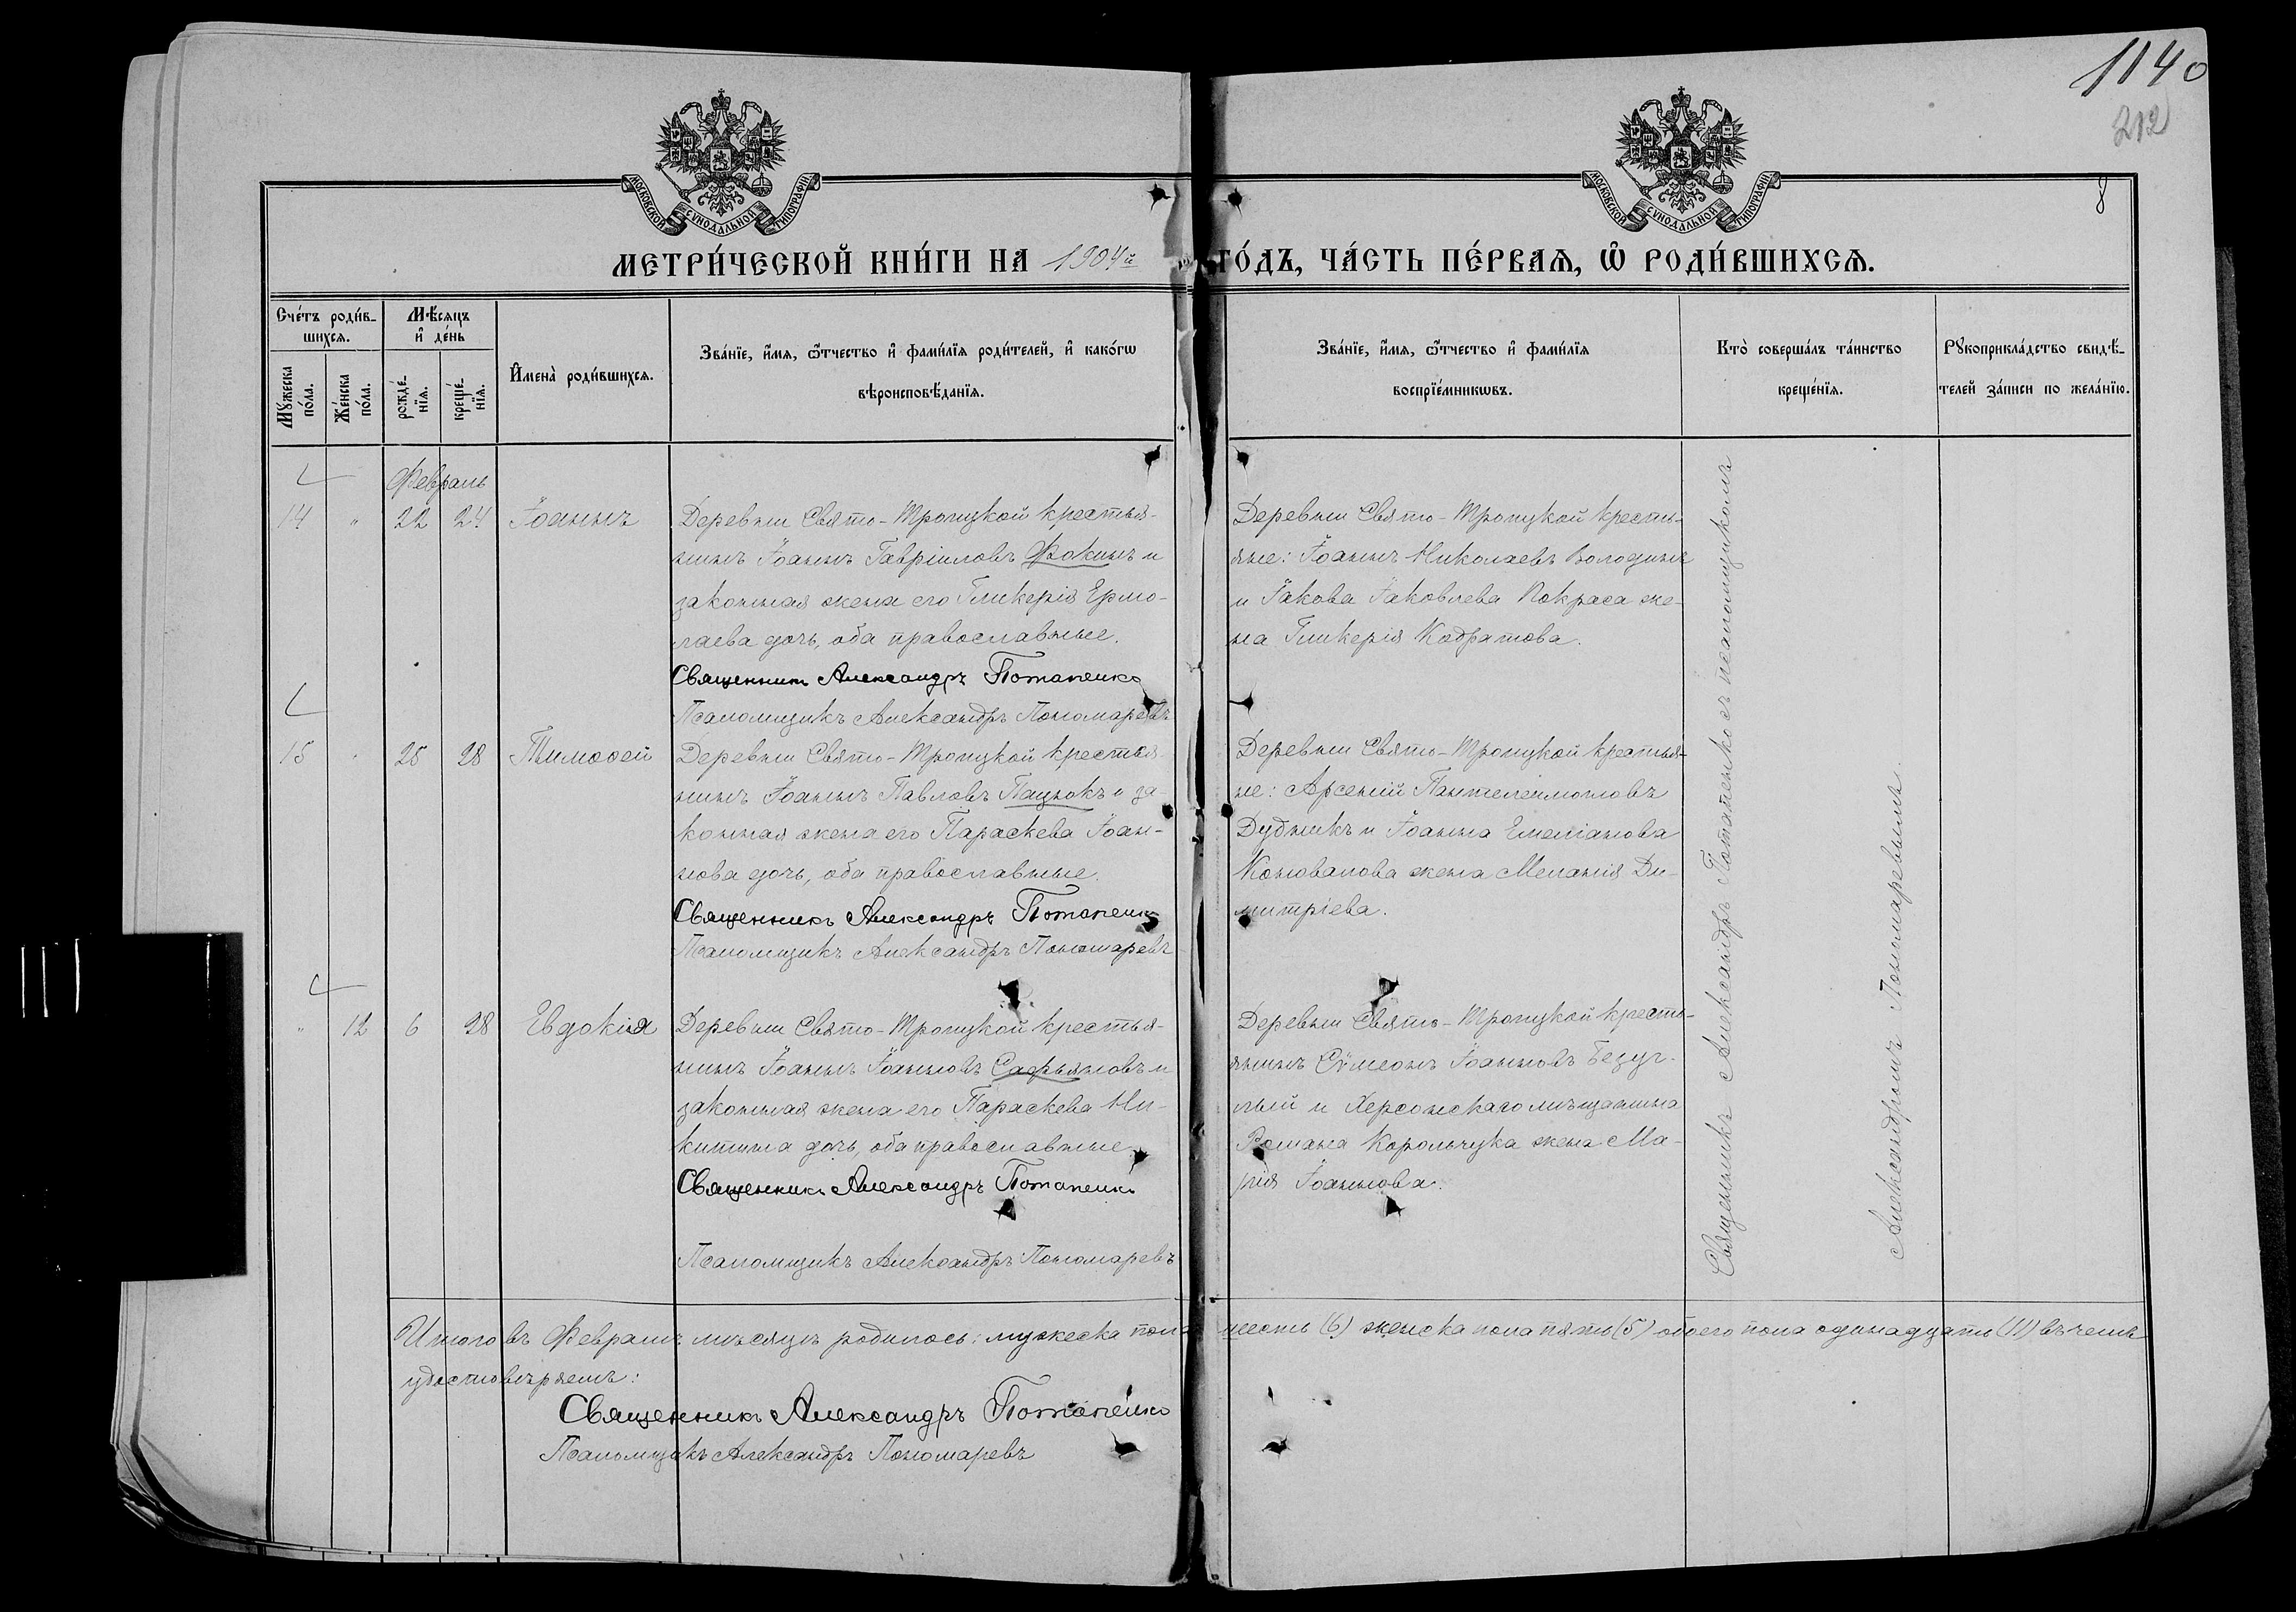 1140
212
8
МОСКОВСКОЙ СѴНОДАЛЬНОЙ ТИПОГРАФІИ
МОСКОВСКОЙ СѴНОДАЛЬНОЙ ТИПОГРАФІИ
МЕТРИ́ЧЕСКОЙ КНИ́ГИ НА 1904й ГО́ДЪ, ЧА́СТЬ ПЕ́РВАѦ, Ѡ҆ РОДИ́ВШИХСѦ.
Сче́тъ роди́в-
шихсѧ.
Мꙋ́жеска
по́ла.
Же́нска
по́ла.
Мѣ́сѧцъ
и҆ де́нь
рожде́-
нїѧ.
креще́-
нїѧ.
И҆мена̀ роди́вшихсѧ.
Зва́нїе, и҆́мѧ, ѻ҆́тчество и҆ фами́лїѧ роди́телей, и҆ како́гѡ
вѣроисповѣ́данїѧ.
Зва́нїе, и҆́мѧ, ѻ҆́тчество и҆ фами́лїѧ
воспрїе́мникѡвъ.
Кто̀ соверша́лъ та́инство
креще́нїѧ.
Рꙋкоприкла́дство свидѣ́-
телей за́писи по жела́нїю.
Февраль
14 " 22 24 Іоаннъ
Деревни Свято-Троицкой крестья-
нинъ Іоаннъ Гавріиловъ Фокинъ и
законная жена его Гликерія Ермо-
лаева дочь, оба православные.
Священникъ Александръ Потапенко
Псаломщикъ Александръ Пономаревъ
Деревни Свято-Троицкой кресть-
яне: Іоаннъ Николаевъ Володинъ
и Іакова Іаковлева Покраса же-
на Гликерія Кодратова.
15 " 25 28 Тимоѳей
Деревни Свято-Троицкой крестья-
нинъ Іоаннъ Павловъ Пацюкъ и за-
конная жена его Параскева Іоан-
нова дочь, оба православные.
Священникъ Александръ Потапенко
Псаломщикъ Александръ Пономаревъ
Деревни Свято-Троицкой крестья-
не: Арсеній Пантелеимоновъ
Дудникъ и Іоанна Емеліанова
Коновалова жена Меланія Ди-
митріева.
" 12 6 28 Евдокія
Деревни Свято-Троицкой крестья-
нинъ Іоаннъ Іоанновъ Сафьяновъ и
законная жена его Параскева Ни-
китина дочь, оба православные
Священникъ Александръ Потапенко
Псаломщикъ Александръ Пономаревъ
Деревни Свято-Троицкой кресть-
янинъ Сѵмеонъ Іоанновъ Безуг-
лый и Херсонскаго мѣщанина
Романа Корольчука жена Ма-
рія Іоаннова.
Священникъ Александръ Потапенко съ псаломщикомъ
Александромъ Пономаревымъ.
Итого въ Февралѣ мѣсяцѣ родилось: мужеска пола шесть (6) женска пола пять (5) обоего пола одинадцать (11) въ чемъ
удостовѣряемъ:
Священникъ Александръ Потапенко
Псаломщикъ Александръ Пономаревъ